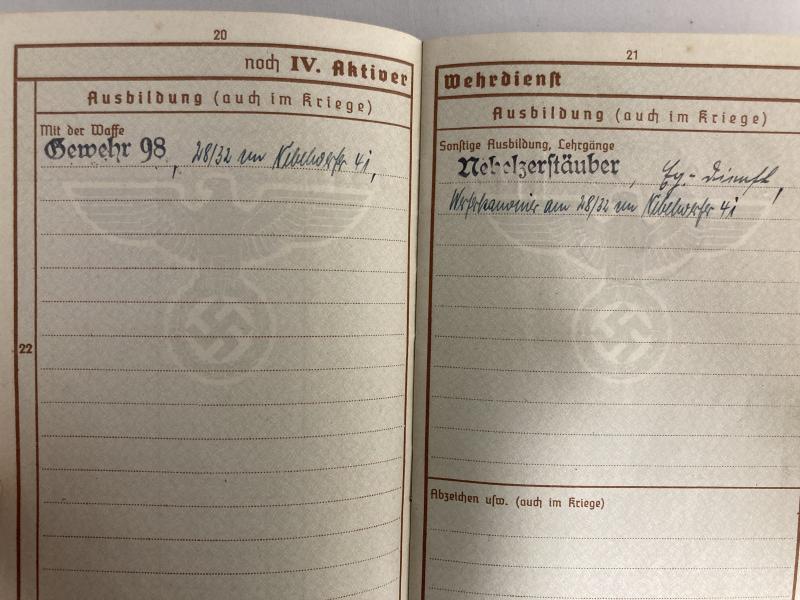 20
noch IV. Aktiver
Ausbildung (auch im Kriege)
Mit der Waffe
Gewehr 98, 28/32 cm Nebelwerfer 41,
22
21
Wehrdienst
Ausbildung (auch im Kriege)
Sonstige Ausbildung, Lehrgänge
Nebelzerstäuber, Dienst,
am 28/32 cm Nebelwerfer 41
Abzeichen usw. (auch im Kriege)